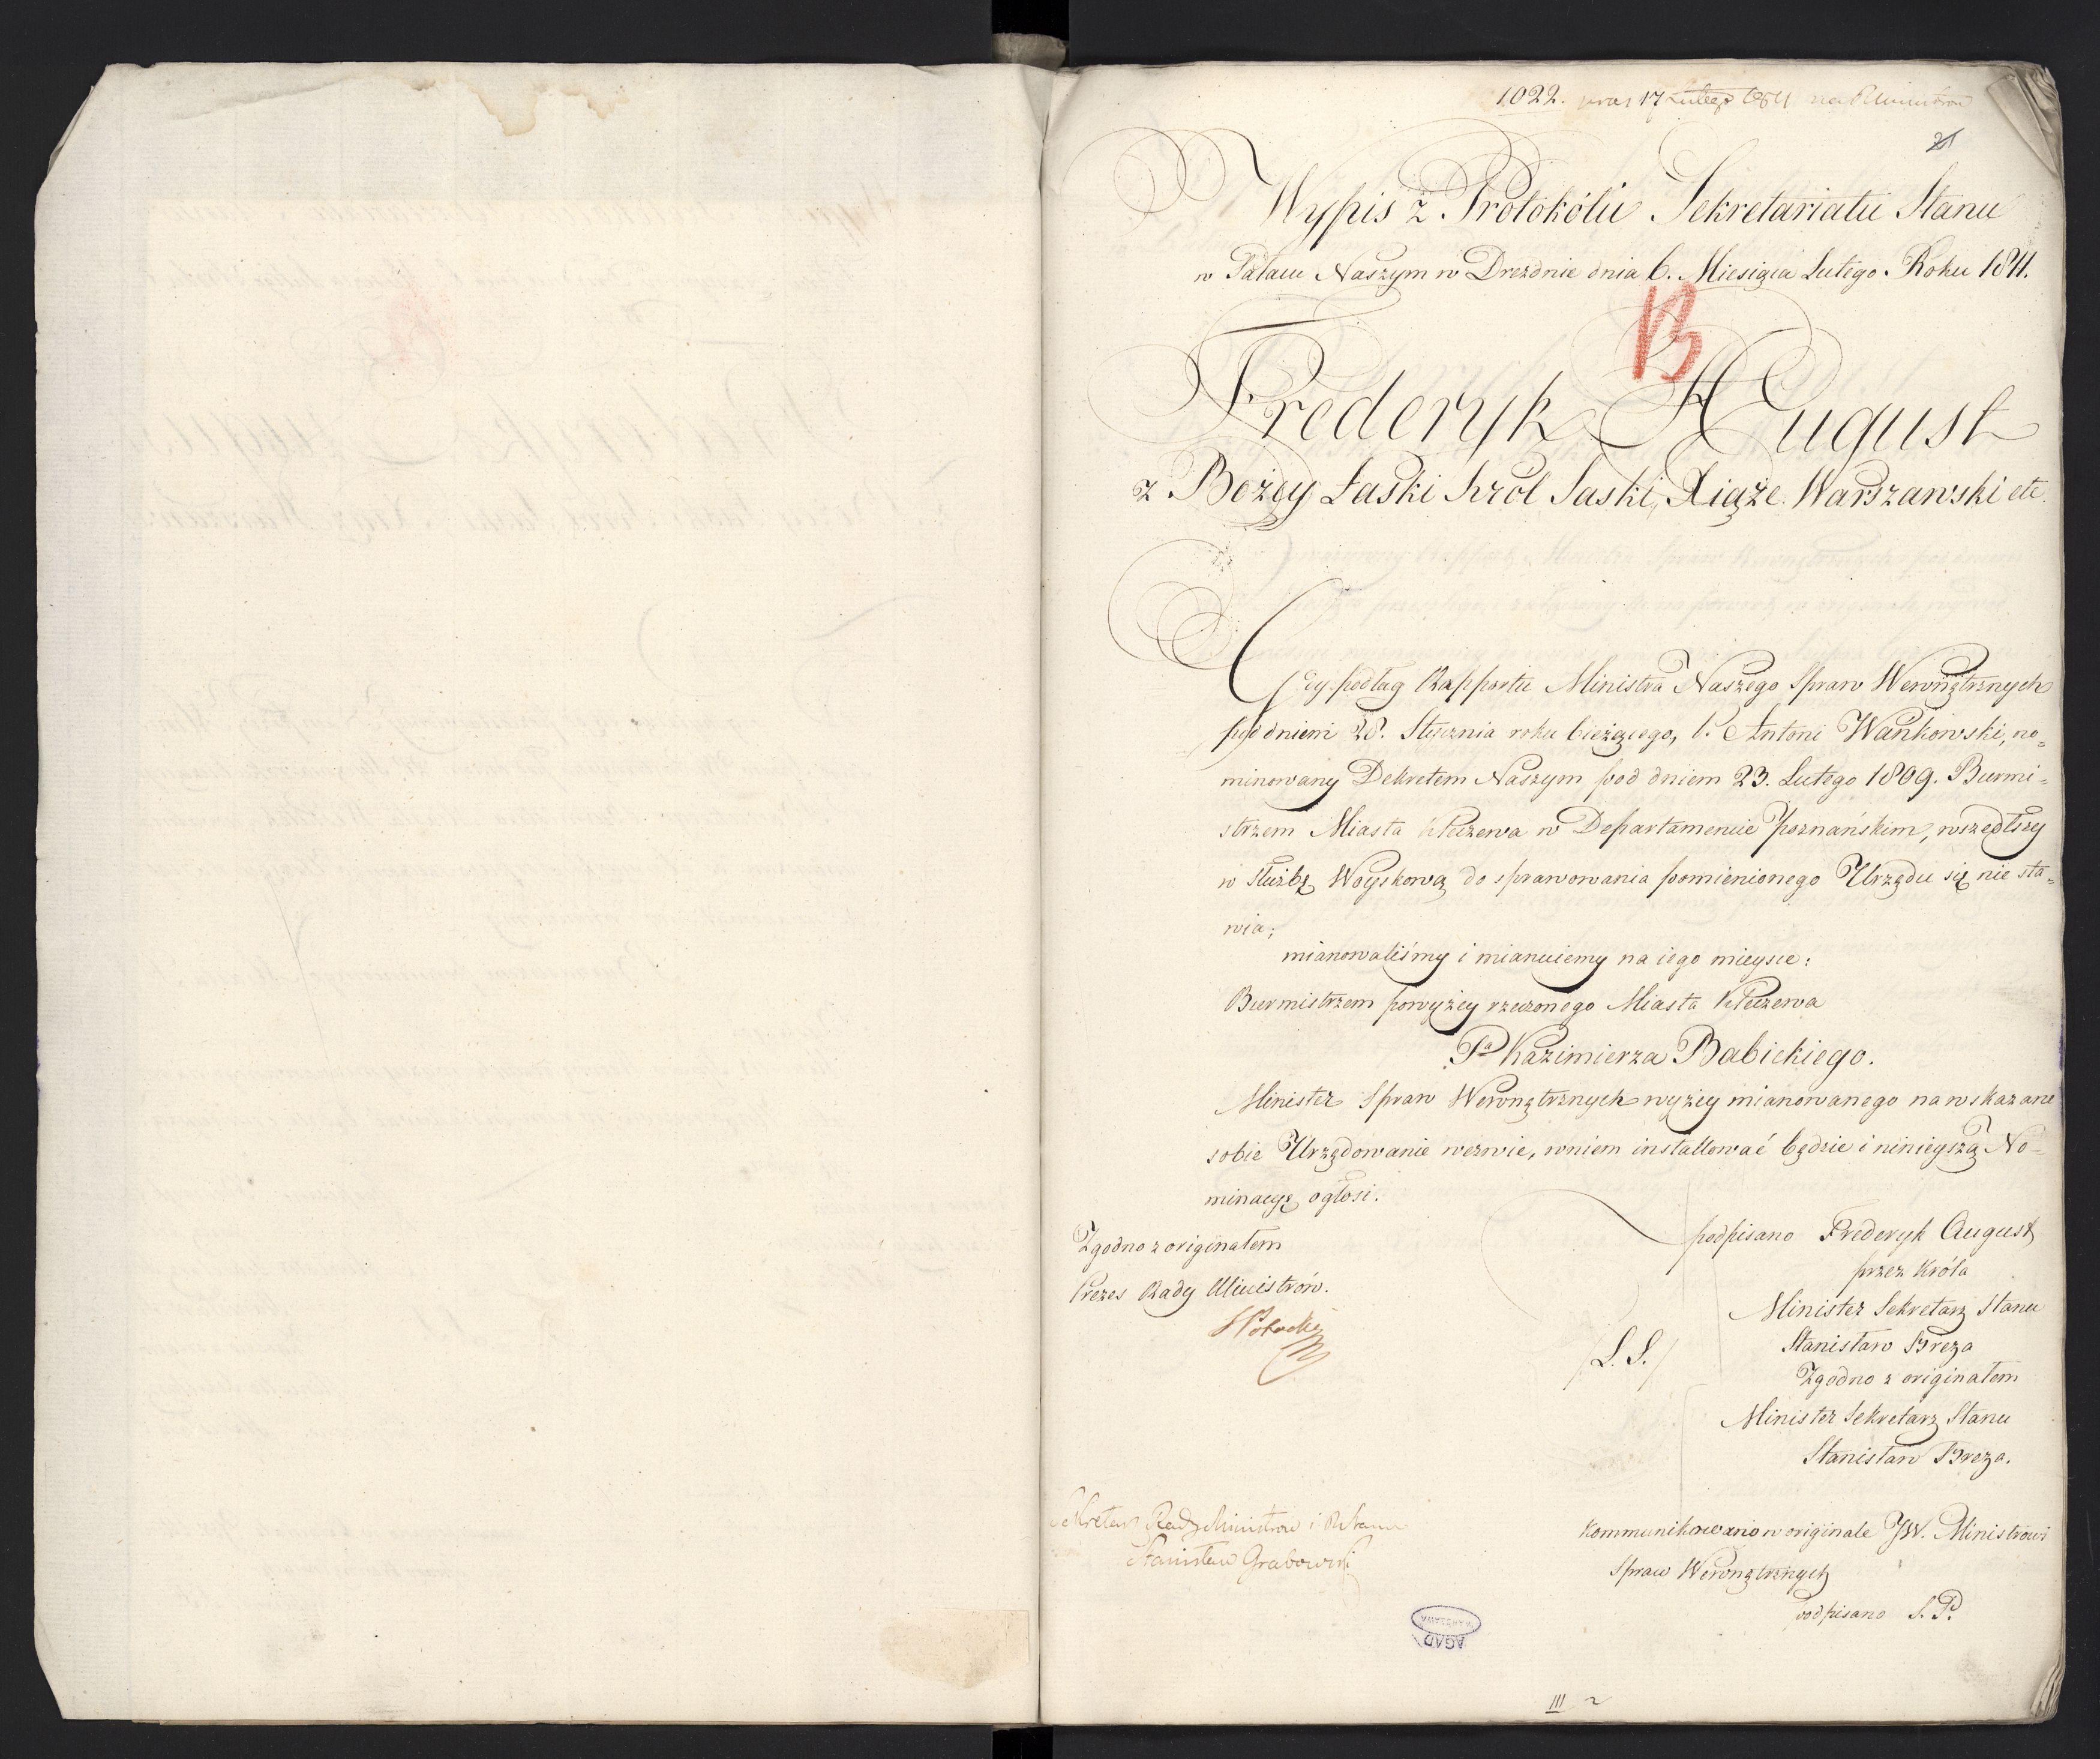 1022. 17 Lutego
21
Wypis z Protokółu Sekretariatu Stanu
w Pałacu Naszym w Dreźdnie dnia 6. Miesiąca Lutego. Roku 1811.
B
Frederyk August
z Bożey Łaski Król Saski, Xiąże Warszawski etc.
Gdy podług Rapportu Ministra Naszego Spraw Wewnętrznych
pod dniem 28. Stycznia roku bieżącego, P. Antoni Wankowski, no=
minowany Dekretem Naszym pod dniem 23. Lutego 1809. Burmi=
strzem Miasta Kleczewa w Departamencie Poznańskim, wszedłszy
w służbę Woyskową do sprawowania pomienionego Urzędu się nie sta=
wia;
mianowaliśmy i mianuiemy na iego mieysce:
Burmistrzem powyżey rzeczonego Miasta Kleczewa
Pa Kazimierza Babickiego.
Minister Spraw Wewnętrznych wyżey mianowanego na wskazane
sobie Urzędowanie wezwie, w niem installować będzie i ninieyszą No=
minacyę ogłosi.
Zgodno z originałem
Prezes Rady Ministrów.
S Potocki
podpisano Frederyk August
przez Króla
Minister Sekretarz Stanu
Stanisław Breza
/L. S./
Zgodno z originałem
Minister Sekretarz Stanu
Stanisław Breza.
Sekretarz Rady Ministrów i R Stanu
Stanisław Grabowski
Kommunikowano w originale JW. Ministrowi
Spraw Wewnętrznych
podpisano S. P.
AGAD
WARSZAWA
III